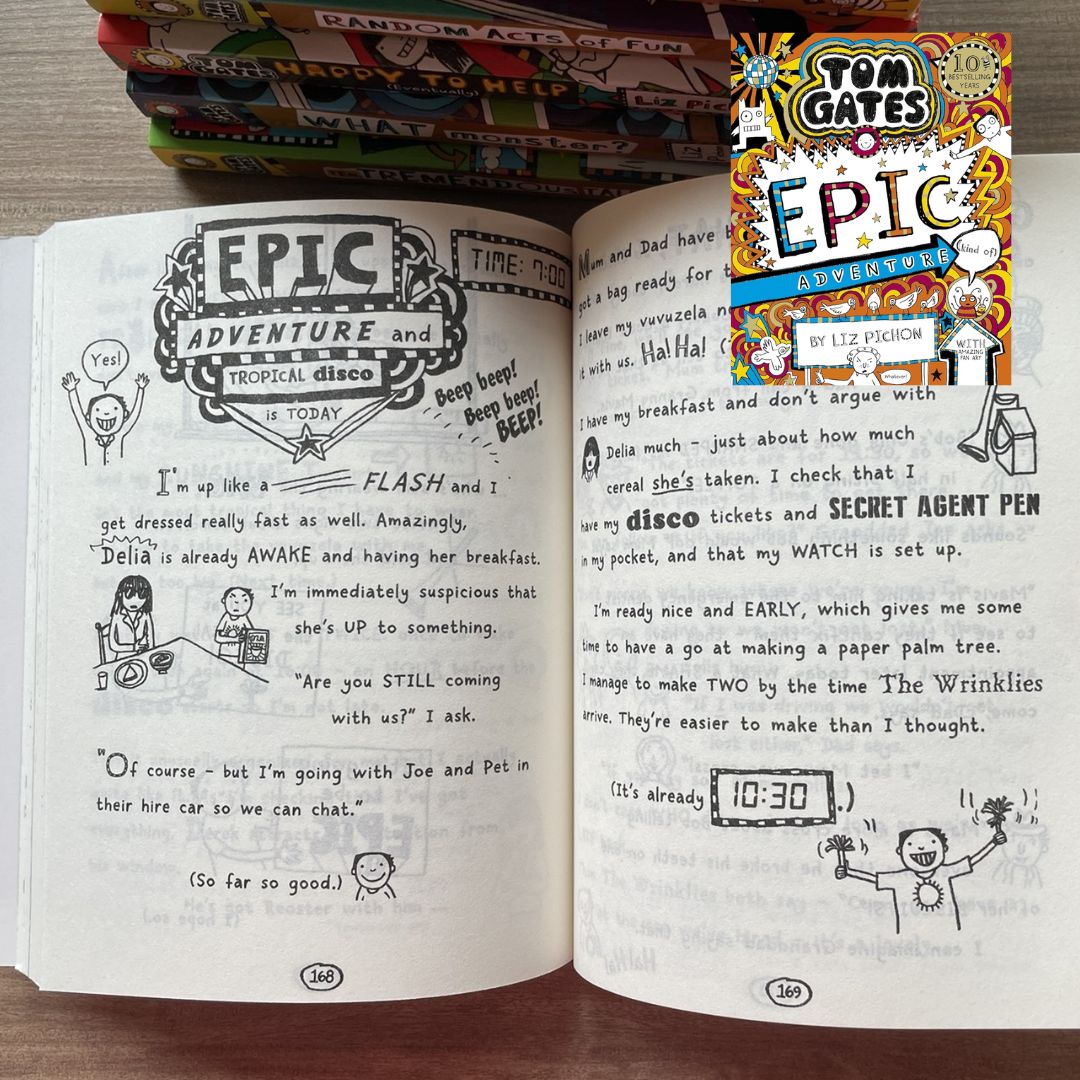 RANDOM ACTS of FUN
TOM GATES
HAPPY TO HELP
(Eventually)
Liz Pic
WHAT monster?
TREMENDOUS
TOM
GATES
10
BESTSELLING
YEARS
EPIC
ADVENTURE
(kind of)
BY LIZ PICHON
WITH
AMAZING
FAN ART
Whatever!
EPIC
ADVENTURE and
TROPICAL disco
is TODAY
TIME: 7:00
Yes!
Beep beep!
Beep beep!
BEEP!
I'm up like a FLASH and I
get dressed really fast as well. Amazingly,
Delia is already AWAKE and having her breakfast.
I'm immediately suspicious that
she's UP to something.
"Are you STILL coming
with us?" I ask.
"Of course - but I'm going with Joe and Pet in
their hire car so we can chat."
(So far so good.)
168
Mum and Dad have
got a bag ready for
I leave my vuvuzela
it with us. Ha! Ha!
I have my breakfast and don't argue with
Delia much - just about how much
cereal she's taken. I check that I
have my disco tickets and SECRET AGENT PEN
in my pocket, and that my WATCH is set up.
I'm ready nice and EARLY, which gives me some
time to have a go at making a paper palm tree.
I manage to make TWO by the time The Wrinklies
arrive. They're easier to make than I thought.
(It's already 10:30.)
169